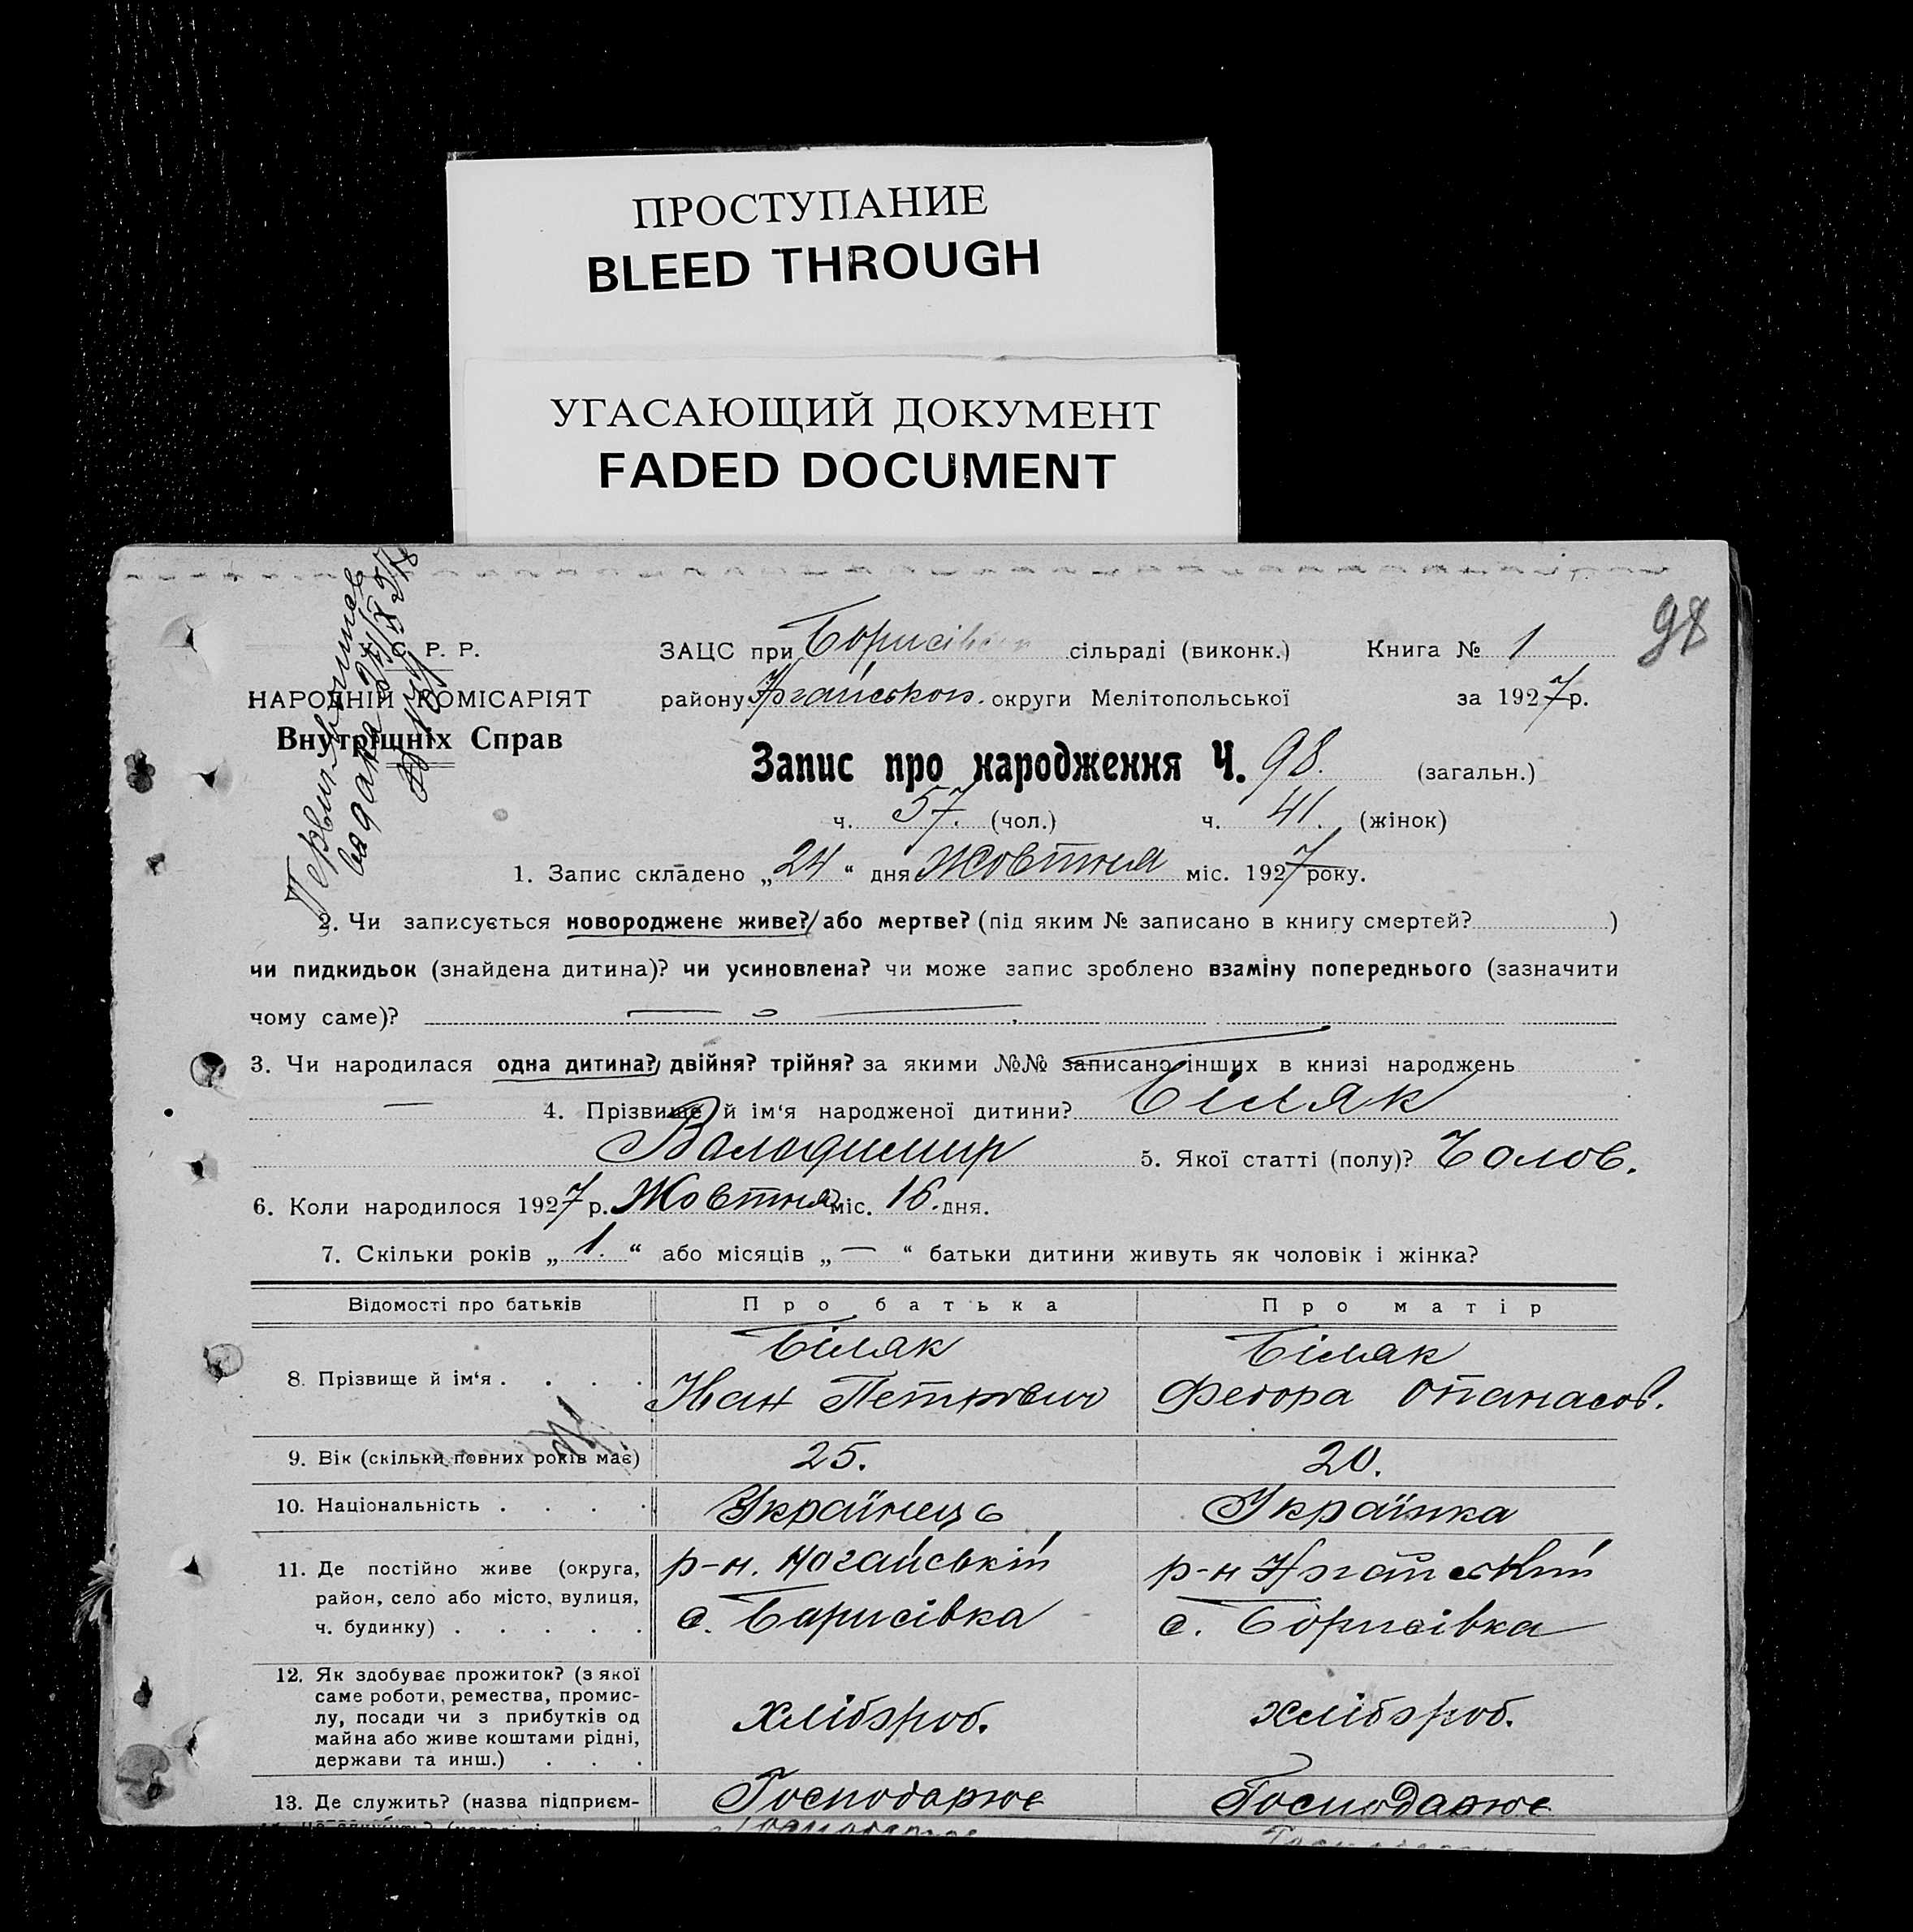 ПРОСТУПАНИЕ
BLEED THROUGH
УГАСАЮЩИЙ ДОКУМЕНТ
FADED DOCUMENT
98
С. Р. Р.
НАРОДНІЙ КОМІСАРІЯТ
Внутрішніх Справ
ЗАЦС при Борисівськ сільраді (виконк.) Книга № 1
району Ногайськом. округи Мелітопольської за 1927 р.
Запис про народження Ч. 98. (загальн.)
ч. 57. (чол.) ч. 41. (жінок)
1. Запис складено „24“ дня Жовтня міс. 1927 року.
2. Чи записується новороджене живе? або мертве? (під яким № записано в книгу смертей? )
чи пидкидьок (знайдена дитина)? чи усиновлена? чи може запис зроблено взаміну попереднього (зазначити
чому саме)? —
3. Чи народилася одна дитина? двійня? трійня? за якими №№ записано інших в книзі народжень
— 4. Прізвище й ім‘я народженої дитини? Біляк
Володимир 5. Якої статті (полу)? Чолов.
6. Коли народилося 1927 р. Жовтня міс. 16. дня.
7. Скільки років „1.“ або місяців „—“ батьки дитини живуть як чоловік і жінка?
Відомості про батьків Про батька Про матір
Біляк Біляк
8. Прізвище й ім‘я . . . . Іван Петрович Федора Опанасов.
9. Вік (скільки повних років має) 25. 20.
10. Національність . . . . Українець Українка
11. Де постійно живе (округа, р-н. Ногайській р-н Ногайский
район, село або місто, вулиця, с. Барисівка с. Борисівка
ч. будинку) . . . . .
12. Як здобуває прожиток? (з якої
саме роботи, ремества, промис-
лу, посади чи з прибутків од хлібороб. хлібороб.
майна або живе коштами рідні,
держави та инш.) . . .
13. Де служить? (назва підприєм- Господарює Господарює